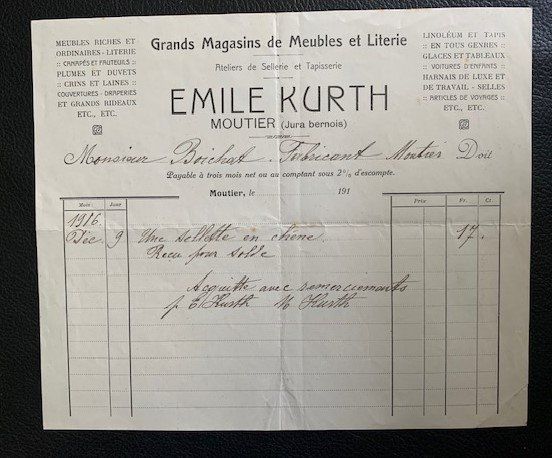 MEUBLES RICHES ET
ORDINAIRES - LITERIE
:: CANAPÉS ET FAUTEUILS ::
PLUMES ET DUVETS
:: CRINS ET LAINES ::
COUVERTURES - DRAPERIES
ET GRANDS RIDEAUX
ETC., ETC.
Grands Magasins de Meubles et Literie
Ateliers de Sellerie et Tapisserie
EMILE KURTH
MOUTIER (Jura bernois)
LINOLÉUM ET TAPIS
:: EN TOUS GENRES ::
GLACES ET TABLEAUX
:: VOITURES D'ENFANTS ::
HARNAIS DE LUXE ET
DE TRAVAIL - SELLES
:: ARTICLES DE VOYAGES ::
ETC., ETC.
Monsieur Boichat. Fabricant Moutier Doit
Payable à trois mois net ou au comptant sous 2% d'escompte.
Moutier, le 191
Mois Jour Prix Fr. Ct
1916.
Déc. 9 Une sellette en chêne. 17.
Recu pour solde
Acquitté avec remerciements
p E. Kurth M Kurth